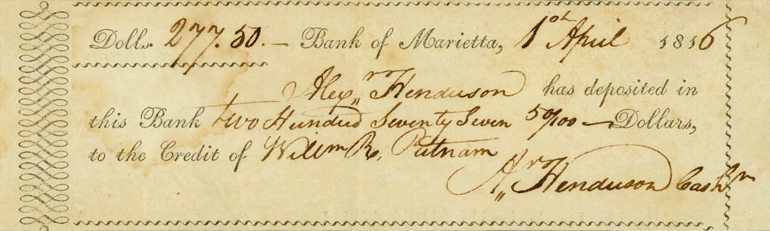 Dolls. 277.50.— Bank of Marietta, 1st April 1816
Alexr Henderson has deposited in
this Bank two Hundred Seventy Seven 50/100 — Dollars,
to the Credit of Willm R. Putnam
Ar Henderson Cashr